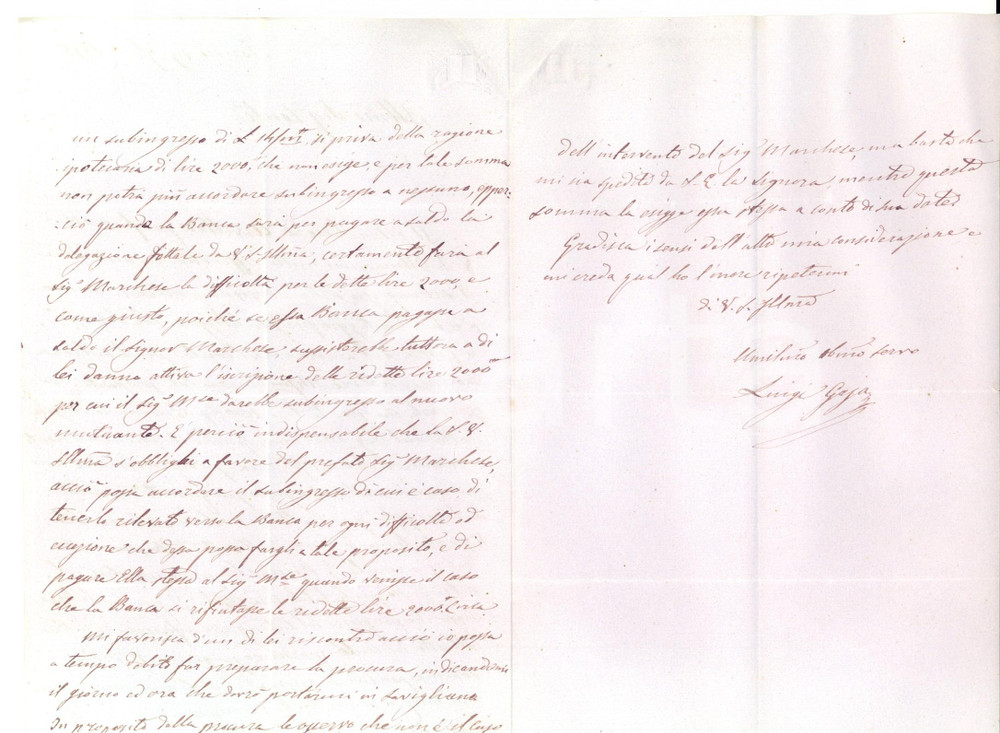 un subingresso di L. si priva della ragione
ipotecaria di lire 2000, che non esige, e per tale somma
non potrà più accordare subingresso a nessuno, epper-
-ciò quando la Banca sarà per pagare a saldo la
delegazione fattale da V. S. Illma, certamente farà al
Sigr Marchese la difficoltà per le dette lire 2000, e
come giusto, poiché se essa Banca pagasse a
saldo il Signor Marchese, sussisterebbe tuttora a di
lei danno attiva l'iscrizione delle ridette lire 2000
per cui il Sigr Mse darebbe subingresso al nuovo
mutuante. È perciò indispensabile che la S. V.
Illma s'obblighi a favore del prefato Sigr Marchese,
acciò possa accordare il subingresso di cui è caso, di
tenerlo rilevato verso la Banca per ogni difficoltà ed
eccezione che dessa possa fargli a tale proposito, e di
pagare Ella stessa al Sigr Mse quando venisse il caso
che la Banca si rifiutasse le ridette lire 2000 circa
Mi favorisca d'un di lei riscontro acciò io possa
a tempo debito far preparare la procura, indicandomi
il giorno ed ora che dovrò portarmi in Savigliano
In proposito della procura le osservo che non è il caso
dell'intervento del Sigr Marchese, ma basta che
mi sia spedita da S. E. la Signora, mentre questa
somma la esigge essa stessa a conto di sua dote
Gradisca i sensi dell'alta mia considerazione e
mi creda qual ho l'onore ripetermi
di V. S. Illma
Umilmo obmo servo
Luigi